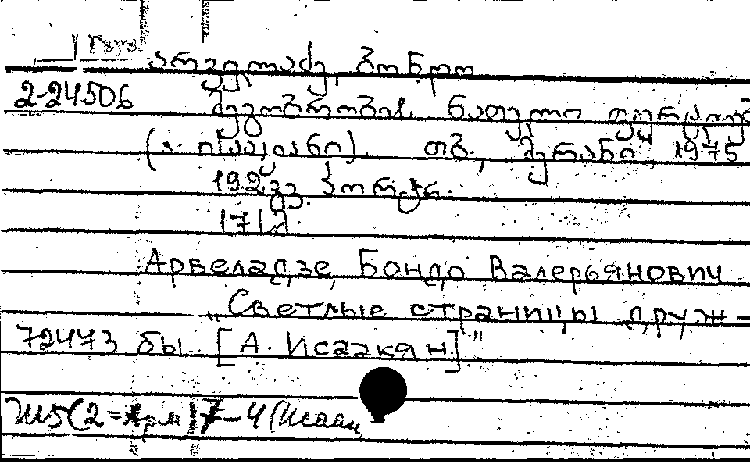 არველაძე, ბონდო
2-24506 მეგობრობის ნათელი ფურცლებ
(ა. ისააკიანი). თბ., მერანი, 1975
192გვ. პორტრ.
171გ.
Арвеладзе, Бондо Валерьянович
„Светлые страницы друж-
72473 бы [А. Исаакян]"
Ш5(2=Арм)7-4(Исаак